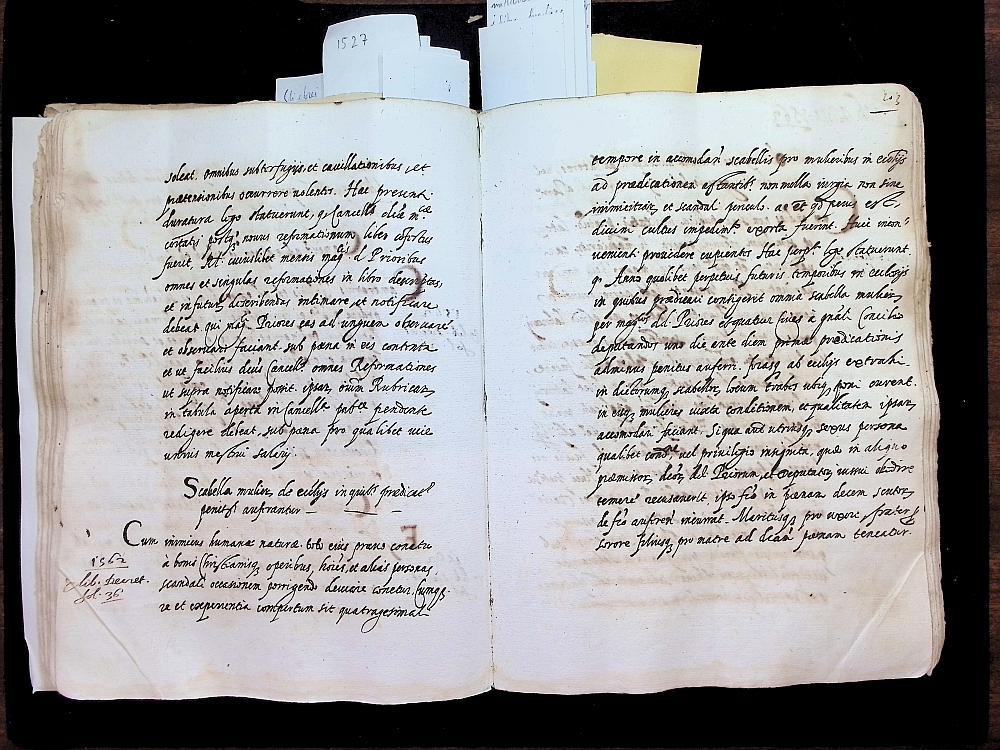 1527
soleat. omnibus subterfugijs, et cavillationibus, et
prætensionibus occurrere volentes. Hac present.
duratura lege statuerunt, q. Cancells
civitatis postq. novus reformationum liber
fuerit, cuiuslibet mensis mag. d Prioribus
omnes et singulas reformationes in libro descriptas,
et in futur. describendas intimare, et notificare
debeat qui mag. Priores eas ad unguem observare
et observari faciant. sub pœna in eis contenta
et ut facilius dictus Cancells. omnes Reformationes
ut supra notificare possit. ipsar. Rubricas
in tabula aperta in Cancella pendente
redigere debeat, sub pœna pro qualibet vice
unius salarij.
Scabella mulier. de ecclijs in quib. prædicat.
penit. aufrantur
Cum inimicus humanæ naturæ. toto eius pravo conatu
a bonis Christianisq. operibus, hoīes, et alias personas
scandali occasionem porrigendo deviare conetur. Cumq.
re et experientia compertum sit quatragesimali
1562
lib. Decret.
fol. 36
203
tempore in acomodan. scabellis pro mulieribus in ecclijs
ad prædicationem non nulla iurgia non sine
inimicitiar. et scandali periculo. ac et qd peius est,
divini cultus impedimt. exorta fuerint. Huic incon-
venienti providere cupientes Hac lege statuerunt.
q. Anno quolibet perpetuis futuris temporibus in ecclesijs
in quibus prædicari contigerit omnia scabella mulier.
per mag. dd. Priores et quatuor cives a gnali Concilio
deputandos uno die ante diem primæ prædicationis
adminus penitus auferri. forasq. ab ecclijs extrahi
in dictorumq. scabellor. locum trabes poni curent.
in eisq. mulieres iuxta conditionem, et qualitatem ipsar.
acomodari faciant. Si qua aut utriusq. sexus persona
qualibet vel privilegio insignita, quæ in aliquo
præmissor. dictor. dd. Priorum, et Deputator. iussui obedire
temere recusaverit ipso fcō in pœnam decem scutor.
de fcō auferen. incurrat. Maritusq. pro uxore, frater p
sorore filiusq. pro matre ad dictam pœnam teneatur.